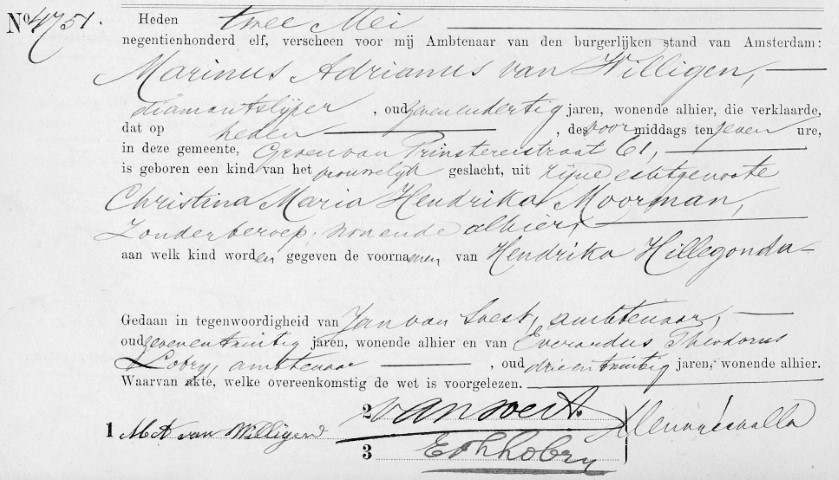 No. 4751. Heden twee Mei
negentienhonderd elf, verscheen voor mij Ambtenaar van den burgerlijken stand van Amsterdam:
Marinus Adrianus van Willigen,
diamantslijper, oud zevenendertig jaren, wonende alhier, die verklaarde,
dat op heden, des voormiddags ten zeven ure,
in deze gemeente, Groen van Prinstererstraat 61,
is geboren een kind van het vrouwelijk geslacht, uit zijne echtgenoote
Christina Maria Hendrika Moorman,
zonder beroep, wonende alhier,
aan welk kind worden gegeven de voornamen van Hendrika Hillegonda
Gedaan in tegenwoordigheid van Jan van Soest, ambtenaar,
oud zevenentwintig jaren, wonende alhier en van Everardus Theodorus
Lobry, ambtenaar, oud drieentwintig jaren, wonende alhier.
Waarvan akte, welke overeenkomstig de wet is voorgelezen.
1 M A van Willigen
2 van Soest.
3 EThLobry